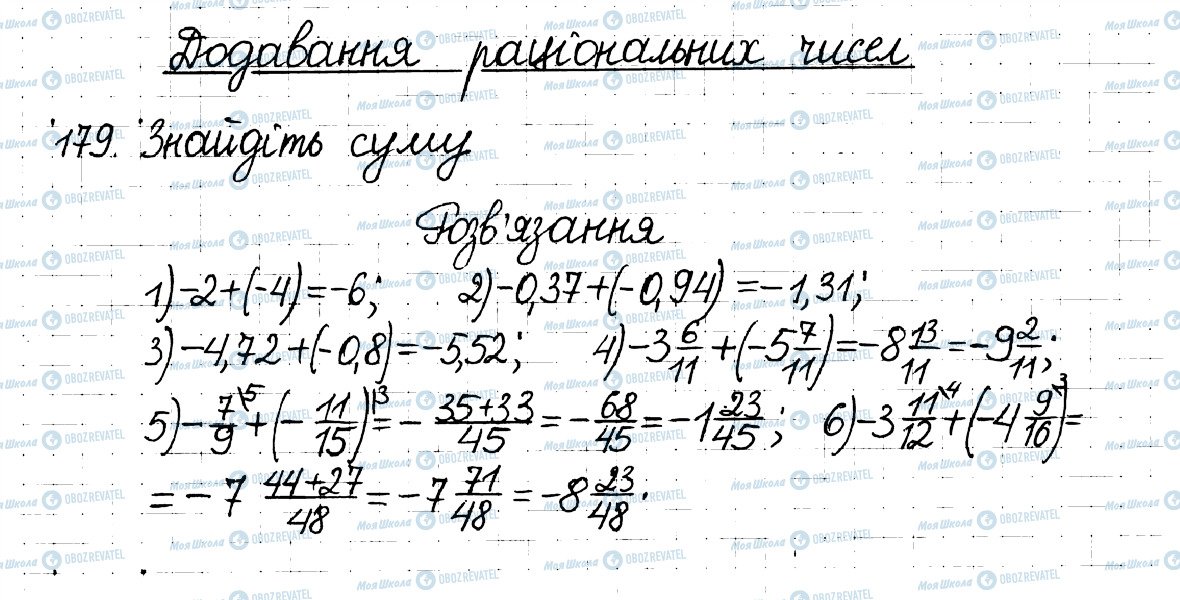 Додавання раціональних чисел
179. Знайдіть суму
Розв'язання
1) -2+(-4)=-6; 2) -0,37+(-0,94)=-1,31;
3) -4,72+(-0,8)=-5,52; 4) -3 6/11 +(-5 7/11)=-8 13/11=-9 2/11;
5) -7/9\5 +(-11/15)\3=-(35+33)/45=-68/45=-1 23/45; 6) -3 11/12\4+(-4 9/16\3)=
=-7 (44+27)/48=-7 71/48=-8 23/48.
Моя Школа OBOZREVATEL